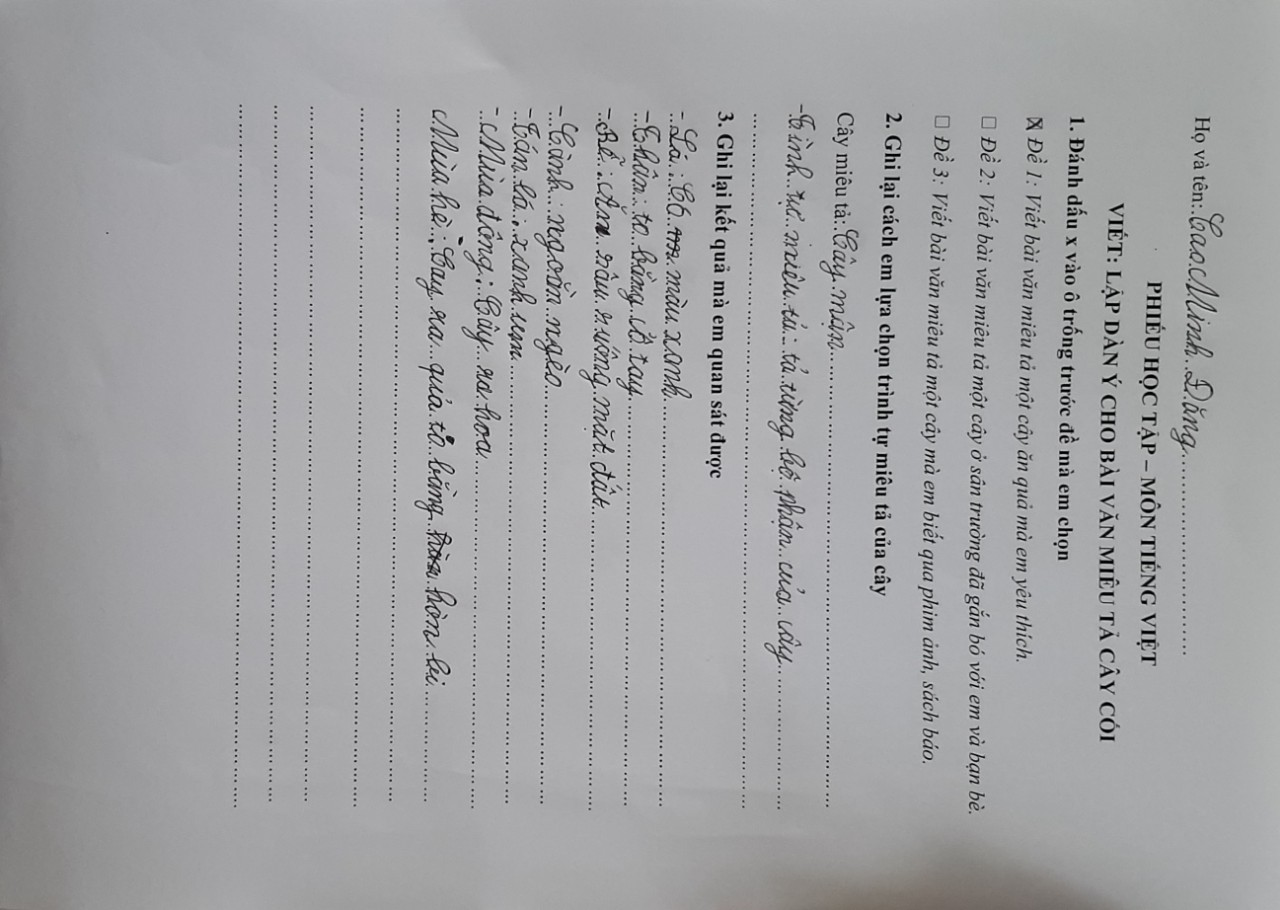 Họ và tên: Cao Minh Đăng
PHIẾU HỌC TẬP – MÔN TIẾNG VIỆT
VIẾT: LẬP DÀN Ý CHO BÀI VĂN MIÊU TẢ CÂY CỐI
1. Đánh dấu x vào ô trống trước đề mà em chọn
☒ Đề 1: Viết bài văn miêu tả một cây ăn quả mà em yêu thích.
☐ Đề 2: Viết bài văn miêu tả một cây ở sân trường đã gắn bó với em và bạn bè.
☐ Đề 3: Viết bài văn miêu tả một cây mà em biết qua phim ảnh, sách báo.
2. Ghi lại cách em lựa chọn trình tự miêu tả của cây
Cây miêu tả: Cây mận
- Tình tự miêu tả: tả từng bộ phận của cây
3. Ghi lại kết quả mà em quan sát được
- Lá: Có màu xanh
- Thân: to bằng cổ tay
- Rễ: Ăn sâu xuống mặt đất
- Cành: ngoằn ngèo
- Tán lá: xanh um
- Mùa đông: Cây ra hoa
Mùa hè: Cay ra quả to bằng hòn bi